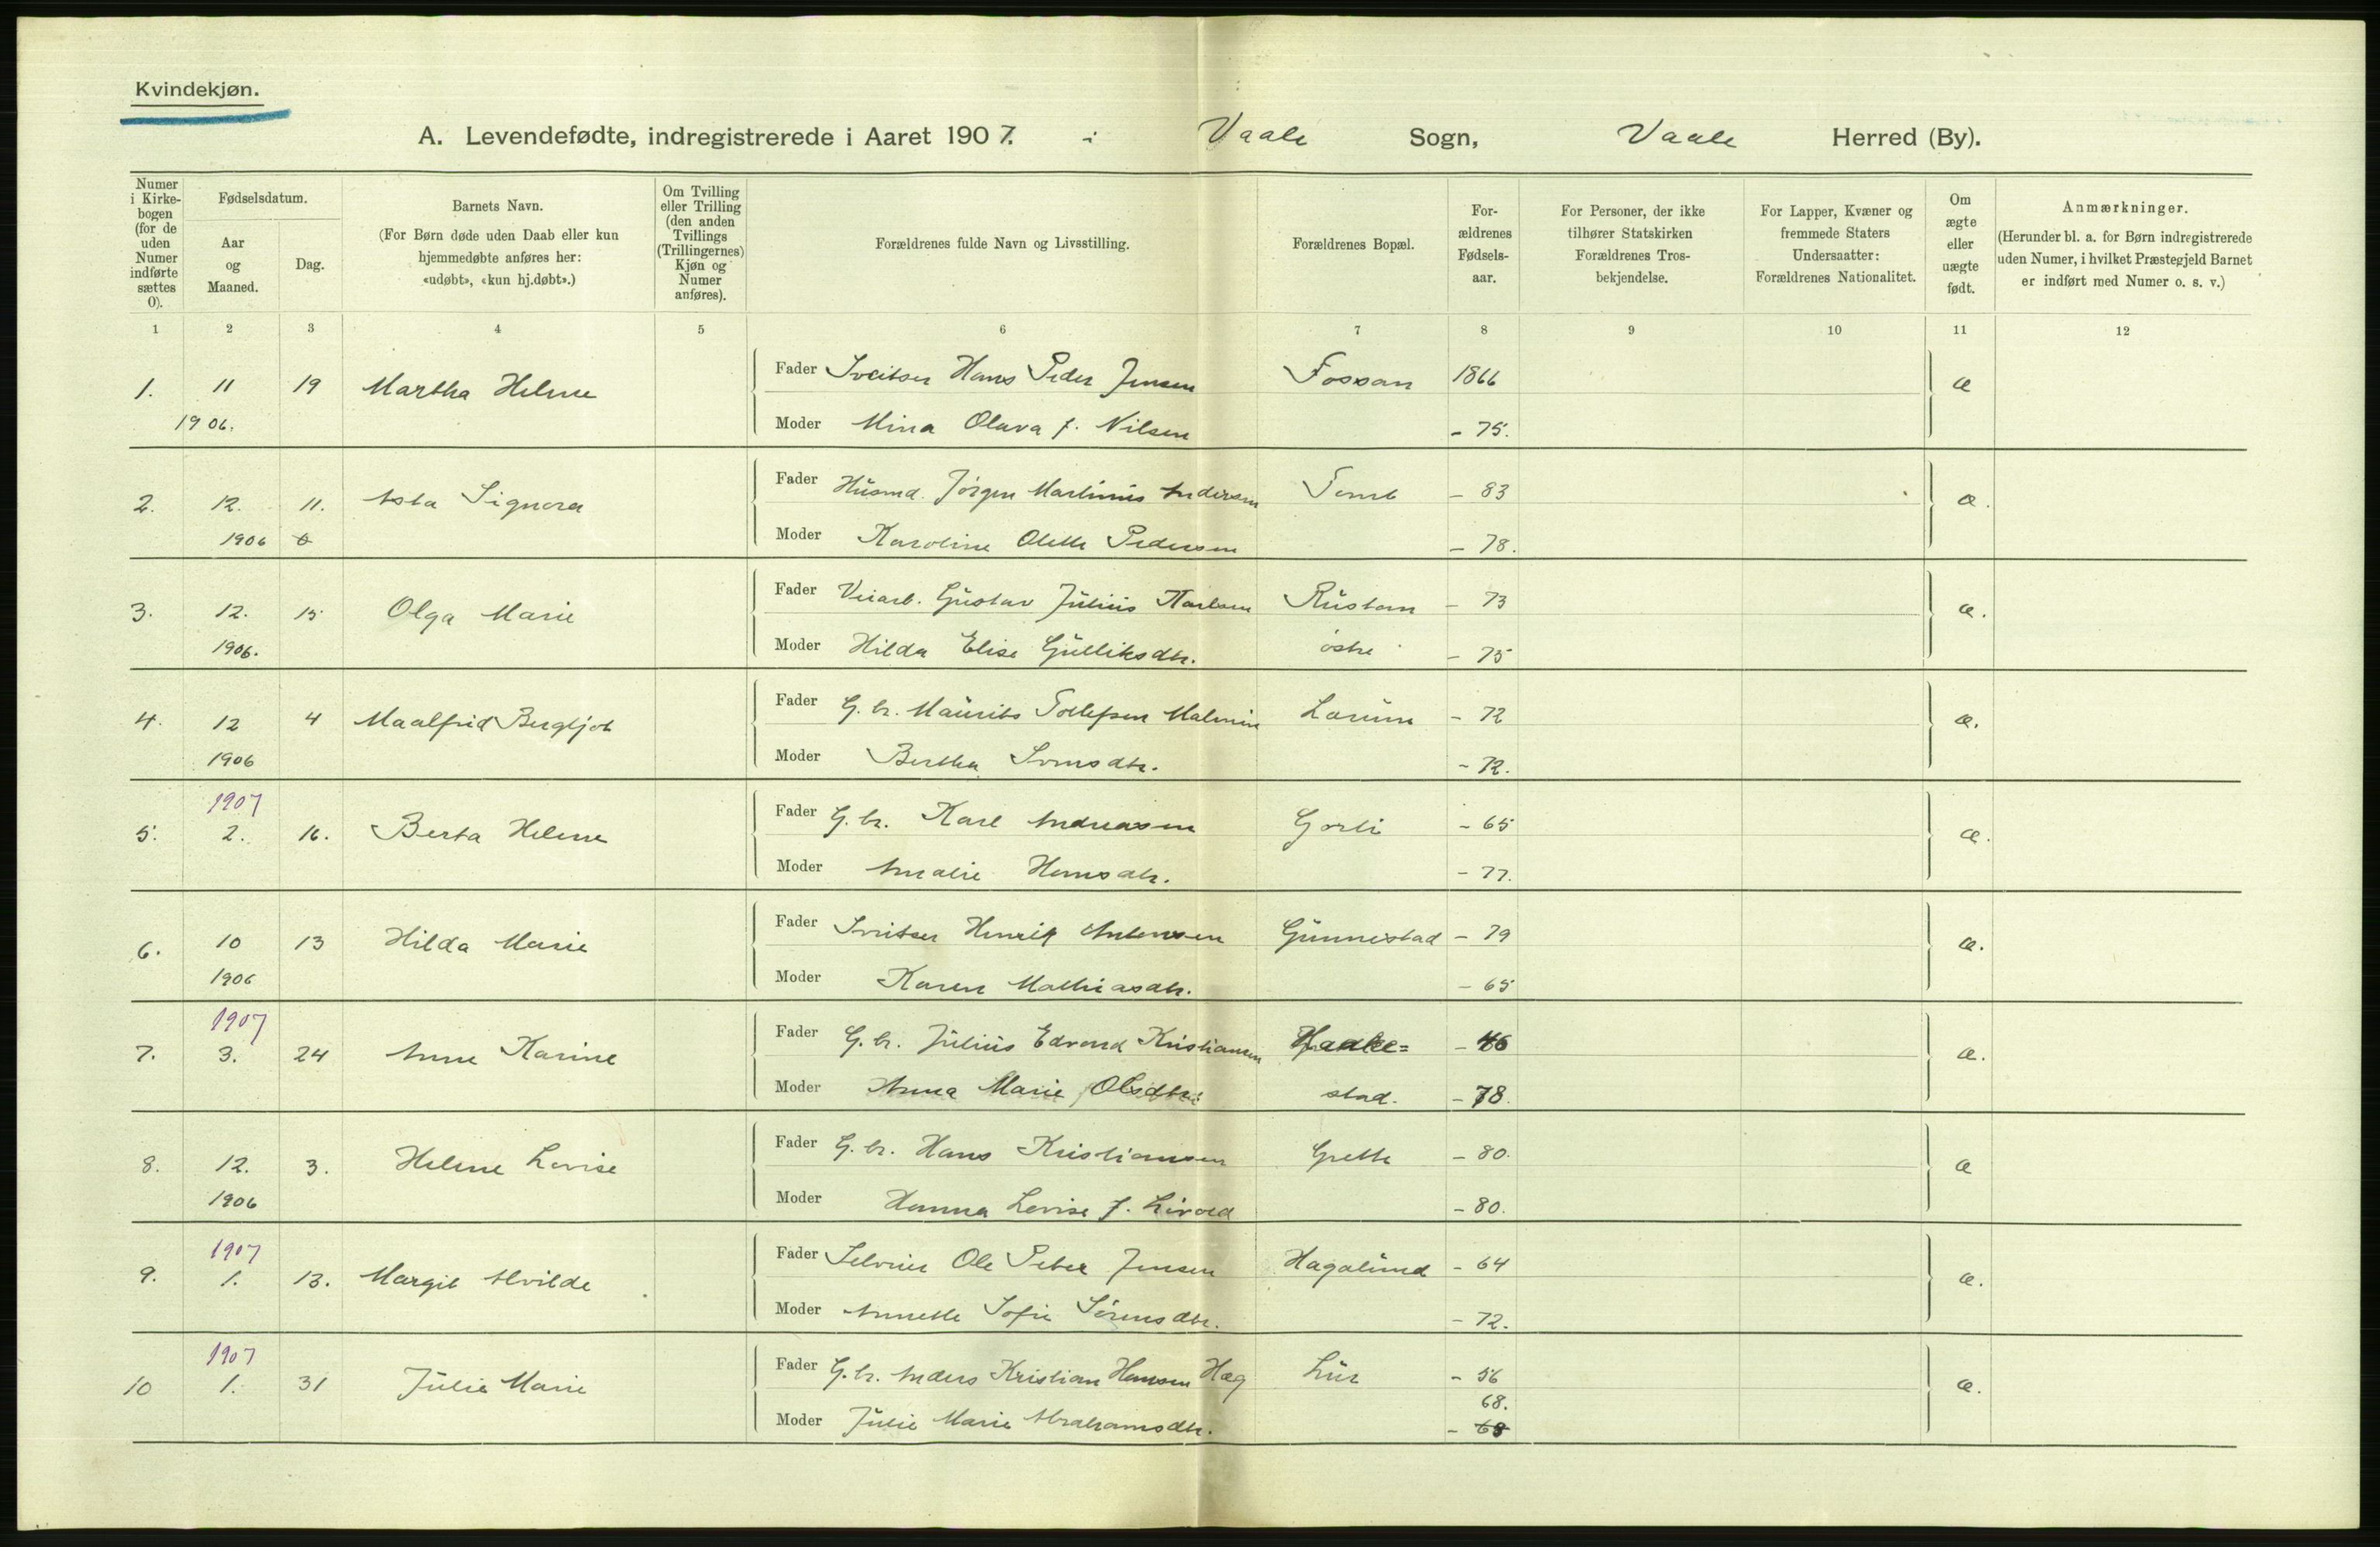 Kvindekjøn.
A. Levendefødte, indregistrerede i Aaret 1907. i Vaale Sogn, Vaale Herred (By).
Numer i Kirkebogen (for de uden Numer indførte sættes 0).
Fødselsdatum.
Aar og Maaned.
Dag.
Barnets Navn.
(For Børn døde uden Daab eller kun hjemmedøbte anføres her: «udøbt», «kun hj.døbt».)
Om Tvilling eller Trilling (den anden Tvillings (Trillingernes) Kjøn og Numer anføres).
Forældrenes fulde Navn og Livsstilling.
Forældrenes Bopæl.
Forældrenes Fødselsaar.
For Personer, der ikke tilhører Statskirken Forældrenes Trosbekjendelse.
For Lapper, Kvæner og fremmede Staters Undersaatter: Forældrenes Nationalitet.
Om ægte eller uægte født.
Anmærkninger.
(Herunder bl. a. for Børn indregistrerede uden Numer, i hvilket Præstegjeld Barnet er indført med Numer o. s. v.)
1 2 3 4 5 6 7 8 9 10 11 12
1. 11 19 Martha Helene Fader Sveitser Hans Peder Jensen Fossan 1866 æ
1906. Moder Mina Olava f. Nilsen - 75.
2. 12. 11. Asta Signora Fader Husmd. Jørgen Martinius Andersen Tomt - 83 æ.
1906 Moder Karoline Olette Pedersen - 78.
3. 12. 15 Olga Marie Fader Veiarb. Gustav Julius Karlsen Rustan - 73 æ.
1906. Moder Hilda Elise Gulliksdtr. østre - 75
4. 12 4 Maalfrid Bergljot Fader G. br. Maurits Tollefsen Malmin Larum - 72 æ.
1906 Moder Bertha Svensdtr. - 72.
1907
5. 2. 16. Berta Helene Fader G. br. Karl Andreasen Gorli - 65 æ.
Moder Amalie Hansdtr. - 77.
6. 10 13 Hilda Marie Fader Sveitser Henrik Antonsen Gunnestad - 79 æ.
1906 Moder Karen Mathiasdtr. - 65
1907
7. 3. 24 Anne Karine Fader G. br. Julius Edvard Kristiansen Haake= - 76 æ.
Moder Anna Marie Olsdtr. stad. - 78.
8. 12. 3. Helene Lovise Fader G. br. Hans Kristiansen Grette - 80. æ
1906 Moder Hanna Lovise f. Livold - 80.
1907
9. 1. 13. Margit Alvilde Fader Selveier Ole Peter Jensen Hagalund - 64 æ.
Moder Annette Sofie Sørensdtr. - 72.
1907
10 1. 31 Julie Marie Fader G. br. Anders Kristian Hansen Hæg Lur - 56 æ.
68.
Moder Julie Marie Abrahamsdtr. - 68